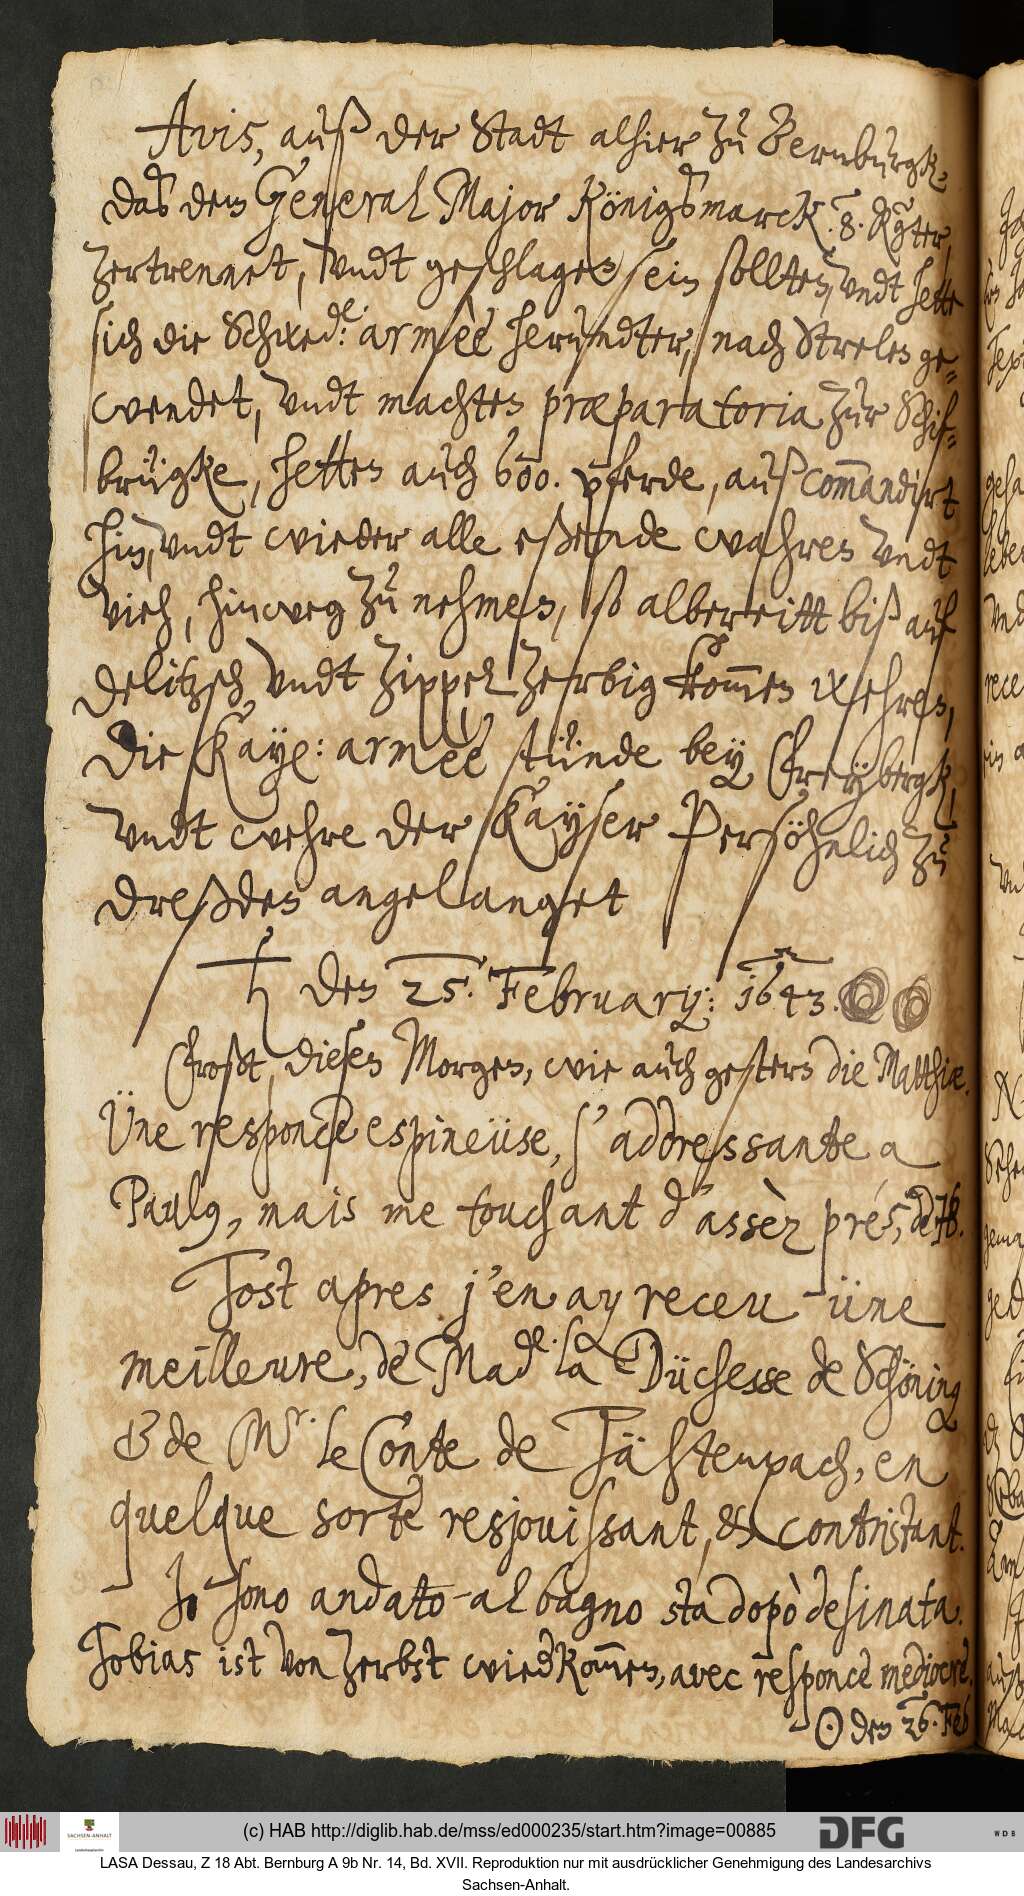 Avis, auß der Stadt alhier zu Bernburgk,
das dem General Major Königsmarck. 8. Rgter,
zertrennet, undt geschlagen sein sollten, undt hette
sich die Schwed:e armèè herundter, nach Strelen ge-
wendet, undt machten præparatoria zur Schif-
brügke, hetten auch 600. pferde, auß com̅andirt
hin, undt wieder alle eßende wahren undt
vieh, hinweg zu nehmen, so albereitt biß auf
Delitzsch, undt Zippel Zerbig kom̅en wehren,
Die Kaye: armèè stünde bey Freybergk,
undt wehre der Kayser Persöhnlich zu
Dreßden angelanget
♄ den 25. February: 1643.
Frost, diesen Morgen, wie auch gestern die Matthiæ.
Üne responce espineüse, s'addressante a
Paulg, mais me touchant d'assèz prés,
Tost apres j'en ay receu üne
meilleure, de Made. la Düchesse de Schöning
& de Mr. le Conte de Täststenpach, en
quelque sorte resjouissant, & contristant.
Io sono andato al bagno sta dopò desinata.
Tobias ist von Zerbst wied kom̅en, avec responce mediocre.
☉ den 26. Feb
(c) HAB http://diglib.hab.de/mss/ed000235/start.htm?image=00885
DFG
WDB
SACHSEN-ANHALT
LASA Dessau, Z 18 Abt. Bernburg A 9b Nr. 14, Bd. XVII. Reproduktion nur mit ausdrücklicher Genehmigung des Landesarchivs
Sachsen-Anhalt.